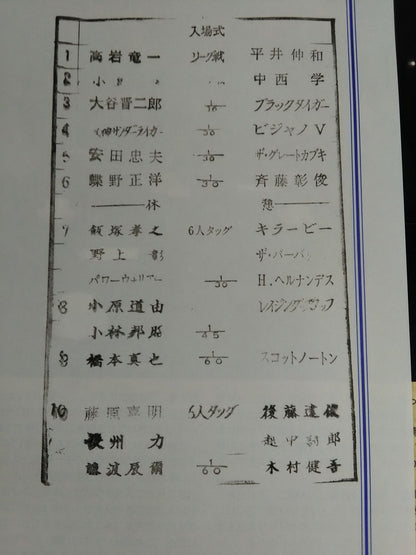 入場式
1 高岩竜一 リーグ戦 平井伸和
2 小 中西 学
3 大谷晋二郎 1/16 ブラックタイガー
4 サンダーライガー 1/30 ビジャノV
5 安田忠夫 1/30 ザ・グレートカブキ
6 蝶野正洋 1/30 斉藤彰俊
休 憩
7 飯塚孝之 6人タッグ キラービー
野上 彰 ザ・バーバ
パワーウォリアー 1/30 H.ヘルナンデス
8 小原道由
小林邦昭 1/45
9 橋本真也 1/60 スコットノートン
10 藤原喜明 6人タッグ 後藤達俊
長州 力 越中詩郎
藤波辰爾 1/60 木村健吾